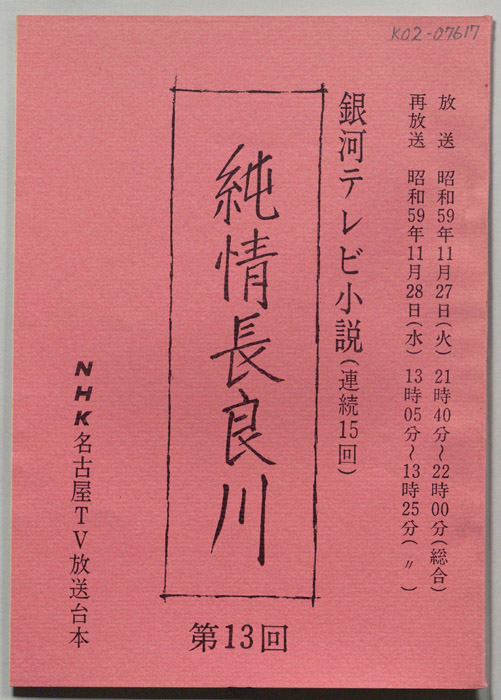 K02-07617
放送 昭和59年11月27日(火) 21時40分〜22時00分(総合)
再放送 昭和59年11月28日(水) 13時05分〜13時25分(〃)
銀河テレビ小説(連続15回)
純情長良川
第13回
NHK名古屋TV放送台本